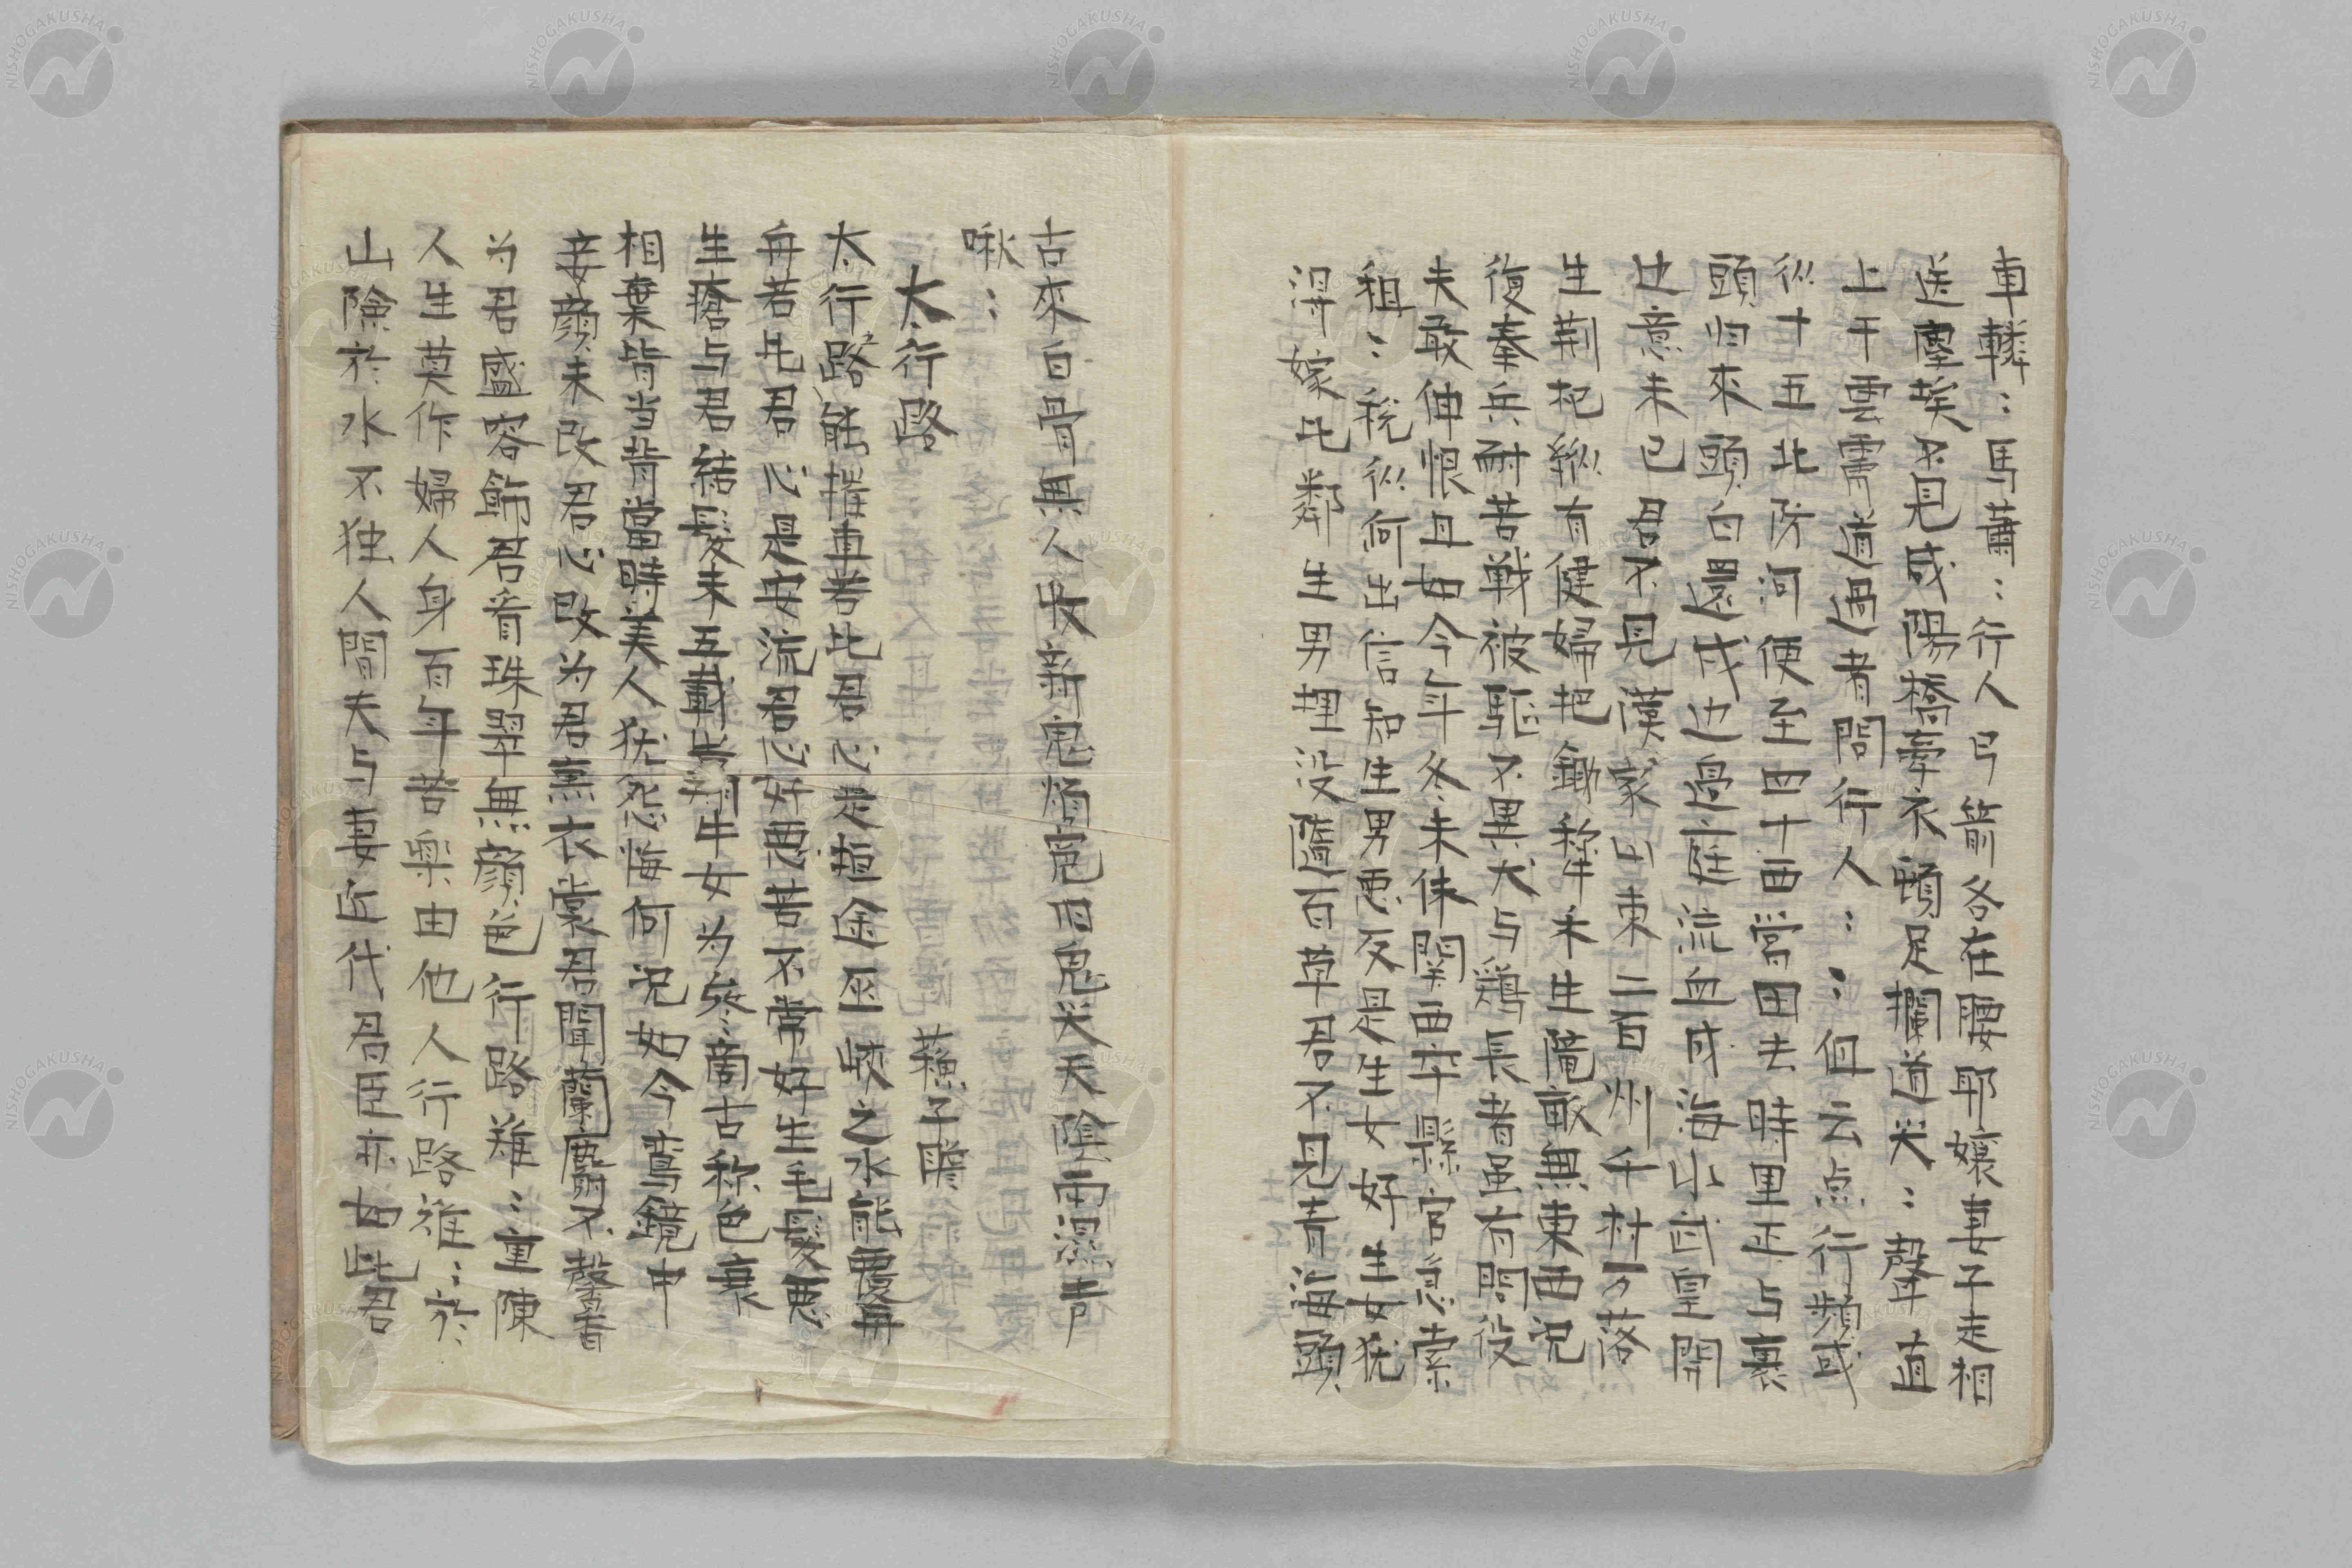 車轔〻馬蕭〻行人弓箭各在腰耶嬢妻子走相
送塵埃不見咸陽橋牽衣頓足攔道哭〻聲直
上干雲霄道過者問行人〻〻但云点行頻或
從十五北防河便至四十西営田去時里正与裹
頭归來頭白還戍辺辺庭流血成海水武皇開
辺意未已君不見漢家山東二百州千村万落
生荆杞縱有健婦把鋤犂禾生隴畝無東西況
復秦兵耐苦戦被駆不異犬与鶏長者虽有問役
夫敢伸恨且如今年冬未休関西卒縣官急索
租〻税從何出信知生男悪反是生女好生女犹
得嫁比鄰生男埋没隨百草君不見青海頭
古來白骨無人收新鬼煩寃旧鬼哭天陰雨濕声
啾〻
太行路
蘓子瞻
太行路能摧車若比君心是坦途巫峽之水能覆舟
舟若比君心是安流君心好悪苦不常好生毛髪悪
生瘡与君結髪未五載豈期牛女为参商古称色衰
相棄背当背當時美人犹怨悔何况如今鸞鏡中
妾顔未改君心改为君熏衣裳君聞蘭麝不馨香
为君盛容飾君看珠翠無顔色行路难〻重陳
人生莫作婦人身百年苦楽由他人行路难〻於
山險於水不独人間夫与妻近代君臣亦如此君